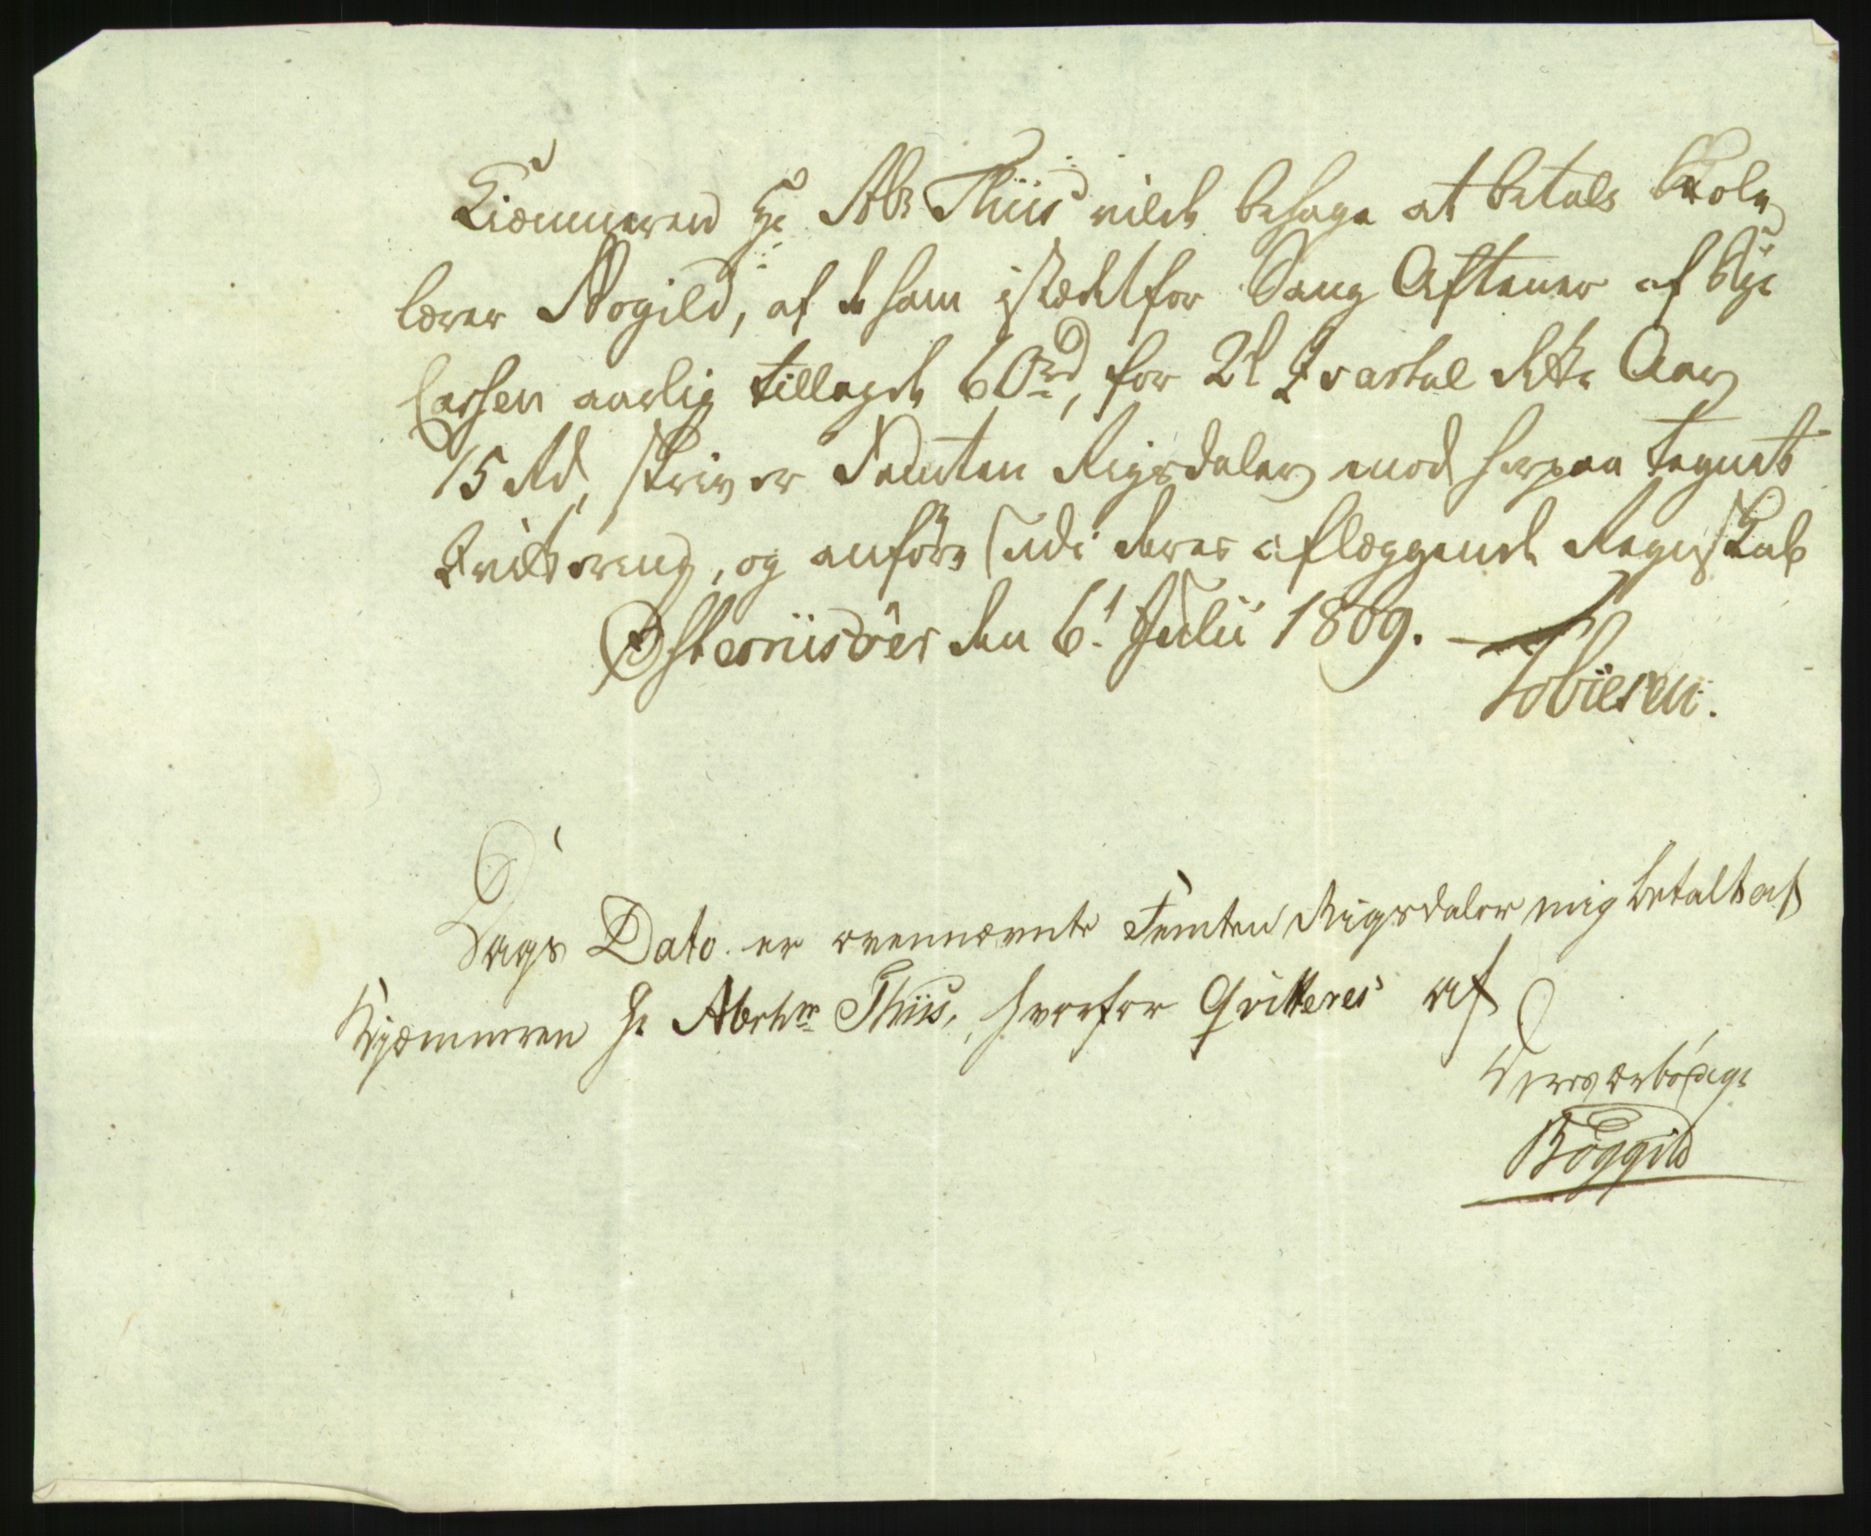 Kiæmneren Hr Abr Thiis vilde behage at betale Skole
lærer Bøgild, af de ham istædetfor Sang Aftener af Bye
Cassen aarlig tillagde 60rd, for 2d Qvartal dette Aar
15 Rd, skriver Femten Rigsdaler mod herpaa tegnet
Qvittering, og anføre Sudi deres aflæggende Regnskab
Østeriisöer den 6t Julii 1809.
Tobiesen.
Dags Dato er ovennævnte Femten Rigsdaler mig betalt af
Kjæmneren Hr Abrhm Thiis, hvorfor Qvitteres af
Deres ærbødige
Bøggild